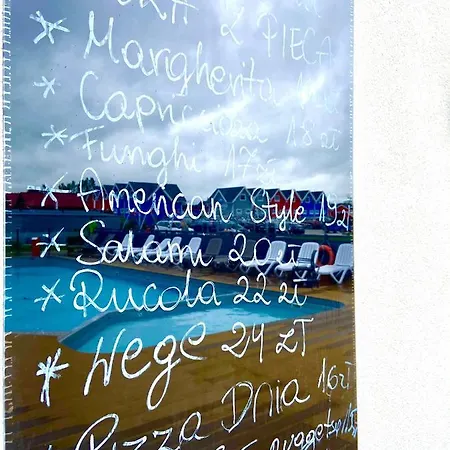 Z PIECA
* Margherita
* Capricciosa 18 zł
* Funghi 17 zł
* American Style 19 zł
* Salami 20 zł
* Rucola 22 zł
* Wege 24 zł
* Pizza Dnia 16 zł